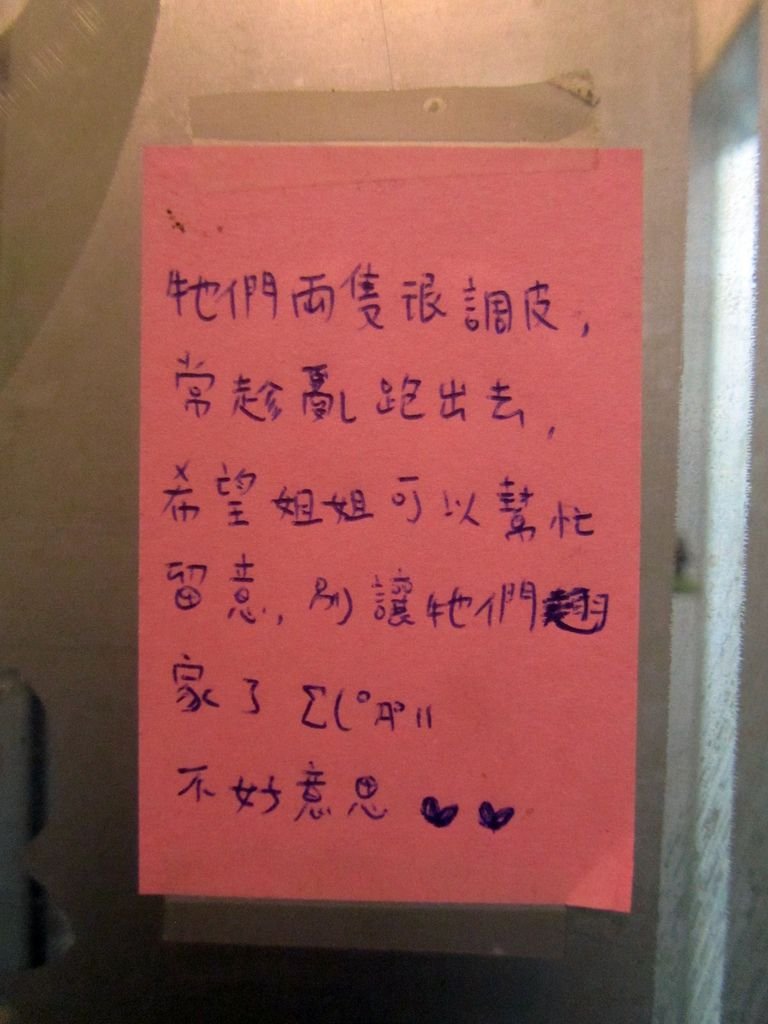 牠們兩隻很調皮,
常趁亂跑出去,
希望姐姐可以幫忙
留意,別讓牠們翹
家了 Σ(°Д°||
不好意思 ♥♥